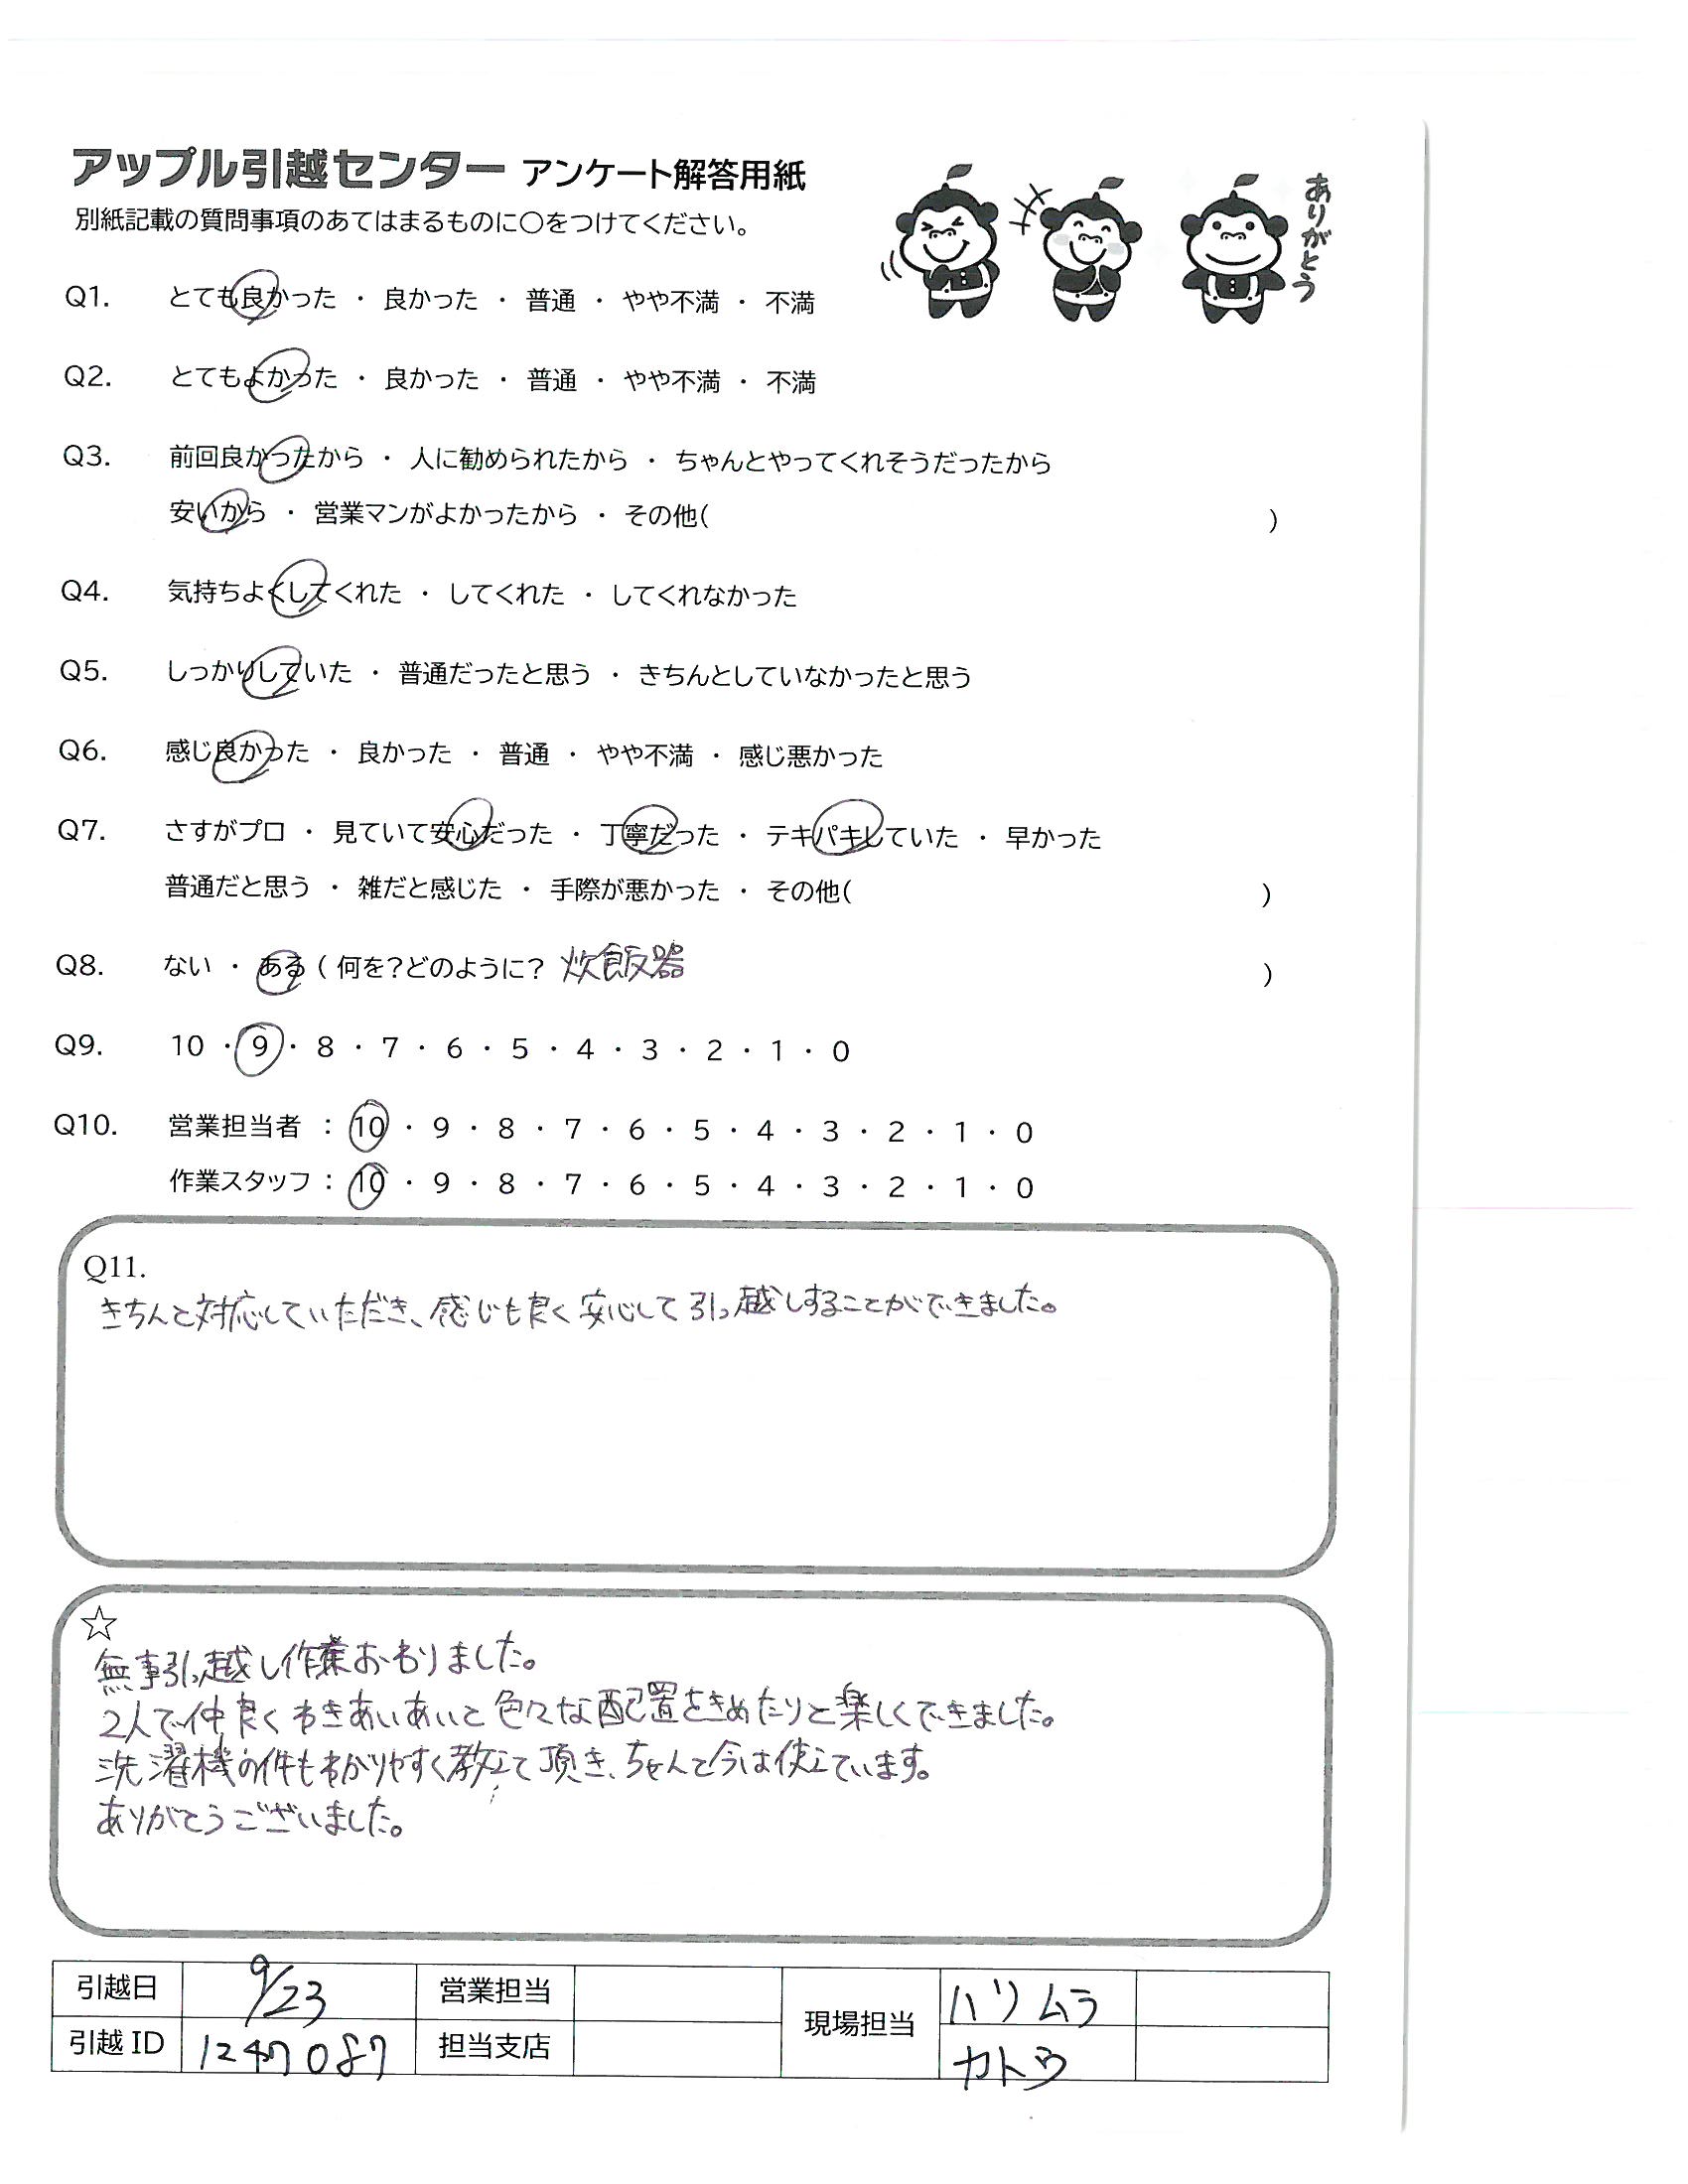 アップル引越センター アンケート解答用紙
別紙記載の質問事項のあてはまるものに〇をつけてください。
ありがとう
Q1. とても良かった ・ 良かった ・ 普通 ・ やや不満 ・ 不満
Q2. とてもよかった ・ 良かった ・ 普通 ・ やや不満 ・ 不満
Q3. 前回良かったから ・ 人に勧められたから ・ ちゃんとやってくれそうだったから
安いから ・ 営業マンがよかったから ・ その他( )
Q4. 気持ちよくしてくれた ・ してくれた ・ してくれなかった
Q5. しっかりしていた ・ 普通だったと思う ・ きちんとしていなかったと思う
Q6. 感じ良かった ・ 良かった ・ 普通 ・ やや不満 ・ 感じ悪かった
Q7. さすがプロ ・ 見ていて安心だった ・ 丁寧だった ・ テキパキしていた ・ 早かった
普通だと思う ・ 雑だと感じた ・ 手際が悪かった ・ その他( )
Q8. ない ・ ある ( 何を?どのように? 炊飯器 )
Q9. 10 ・ 9 ・ 8 ・ 7 ・ 6 ・ 5 ・ 4 ・ 3 ・ 2 ・ 1 ・ 0
Q10. 営業担当者 : 10 ・ 9 ・ 8 ・ 7 ・ 6 ・ 5 ・ 4 ・ 3 ・ 2 ・ 1 ・ 0
作業スタッフ : 10 ・ 9 ・ 8 ・ 7 ・ 6 ・ 5 ・ 4 ・ 3 ・ 2 ・ 1 ・ 0
Q11.
きちんと対応していただき、感じも良く安心して引っ越しすることができました。
☆
無事引っ越し作業おわりました。
2人で仲良くわきあいあいと色々な配置をきめたりと楽しくできました。
洗濯機の件もわかりやすく教えて頂き、ちゃんと今は使えています。
ありがとうございました。
引越日 9/23 営業担当 現場担当 ハリムラ
引越ID 1247087 担当支店 カトウ